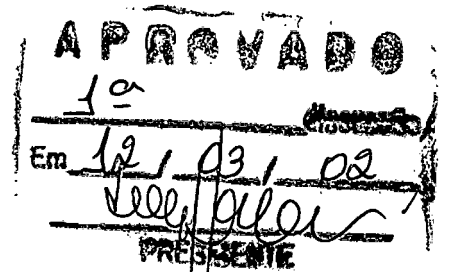 APROVADO
1ª Discussão
Em 12 / 03 / 02
PRESIDENTE